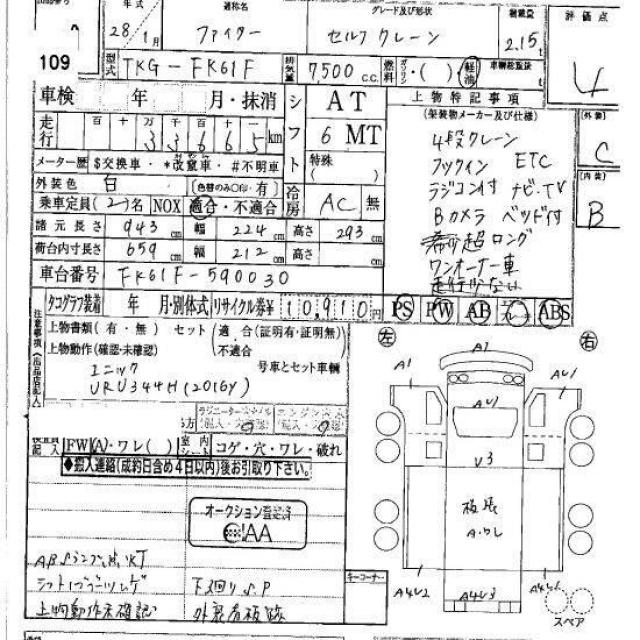 年式 通称名 グレード及び形状 積載量 評価点
28 / 1月 ファイター セルフクレーン 2.15 t 4
109
型式 TKG-FK61F 排気量 7500 C.C. 燃料 ガソリン ・( )・ 軽油 車輌総重量 t
車検 年 月・抹消 シフト AT 上物特記事項
(架装物メーカー及び仕様)
走行 百 十 万 千 百 十 一
33665 km 6 MT
特殊 ( )
4段クレーン
フックイン ETC
ラジコン付 ナビ.TV
Bカメラ ベッド付
超ロング
ワンオーナー車
走行少ない
外装 C
内装 B
メーター歴 $交換車・*改竄車・#不明車
外装色 白 (色替のみ○印・有) 冷房 AC 無
乗車定員 (2)名 NOX 適合・不適合
諸元長さ 943 cm 幅 224 cm 高さ 293 cm
荷台内寸長さ 659 cm 幅 212 cm 高さ cm
車台番号 FK61F-590030
タコグラフ装着 年 月・別体式 リサイクル券¥ 10,910円 PS PW AB ABS
注意事項(出品店記入)
上物書類(有・無) セット 適合(証明有・証明無)
上物動作(確認・未確認) 不適合 号車とセット車輌
ユニック
URU344H (2016y)
FW(A)・ワレ( ) 室内シート コゲ・穴・ワレ・破れ
◆搬入連絡(成約日含め4日以内)後お引取り下さい。
オークション
AA
ABSランプ
上物動作未確認
下回りS.P
キーコーナー
左 右
A1 A1 AU1
AU1
U3
板張
A.ワレ
A4U2 A4U3
スペア